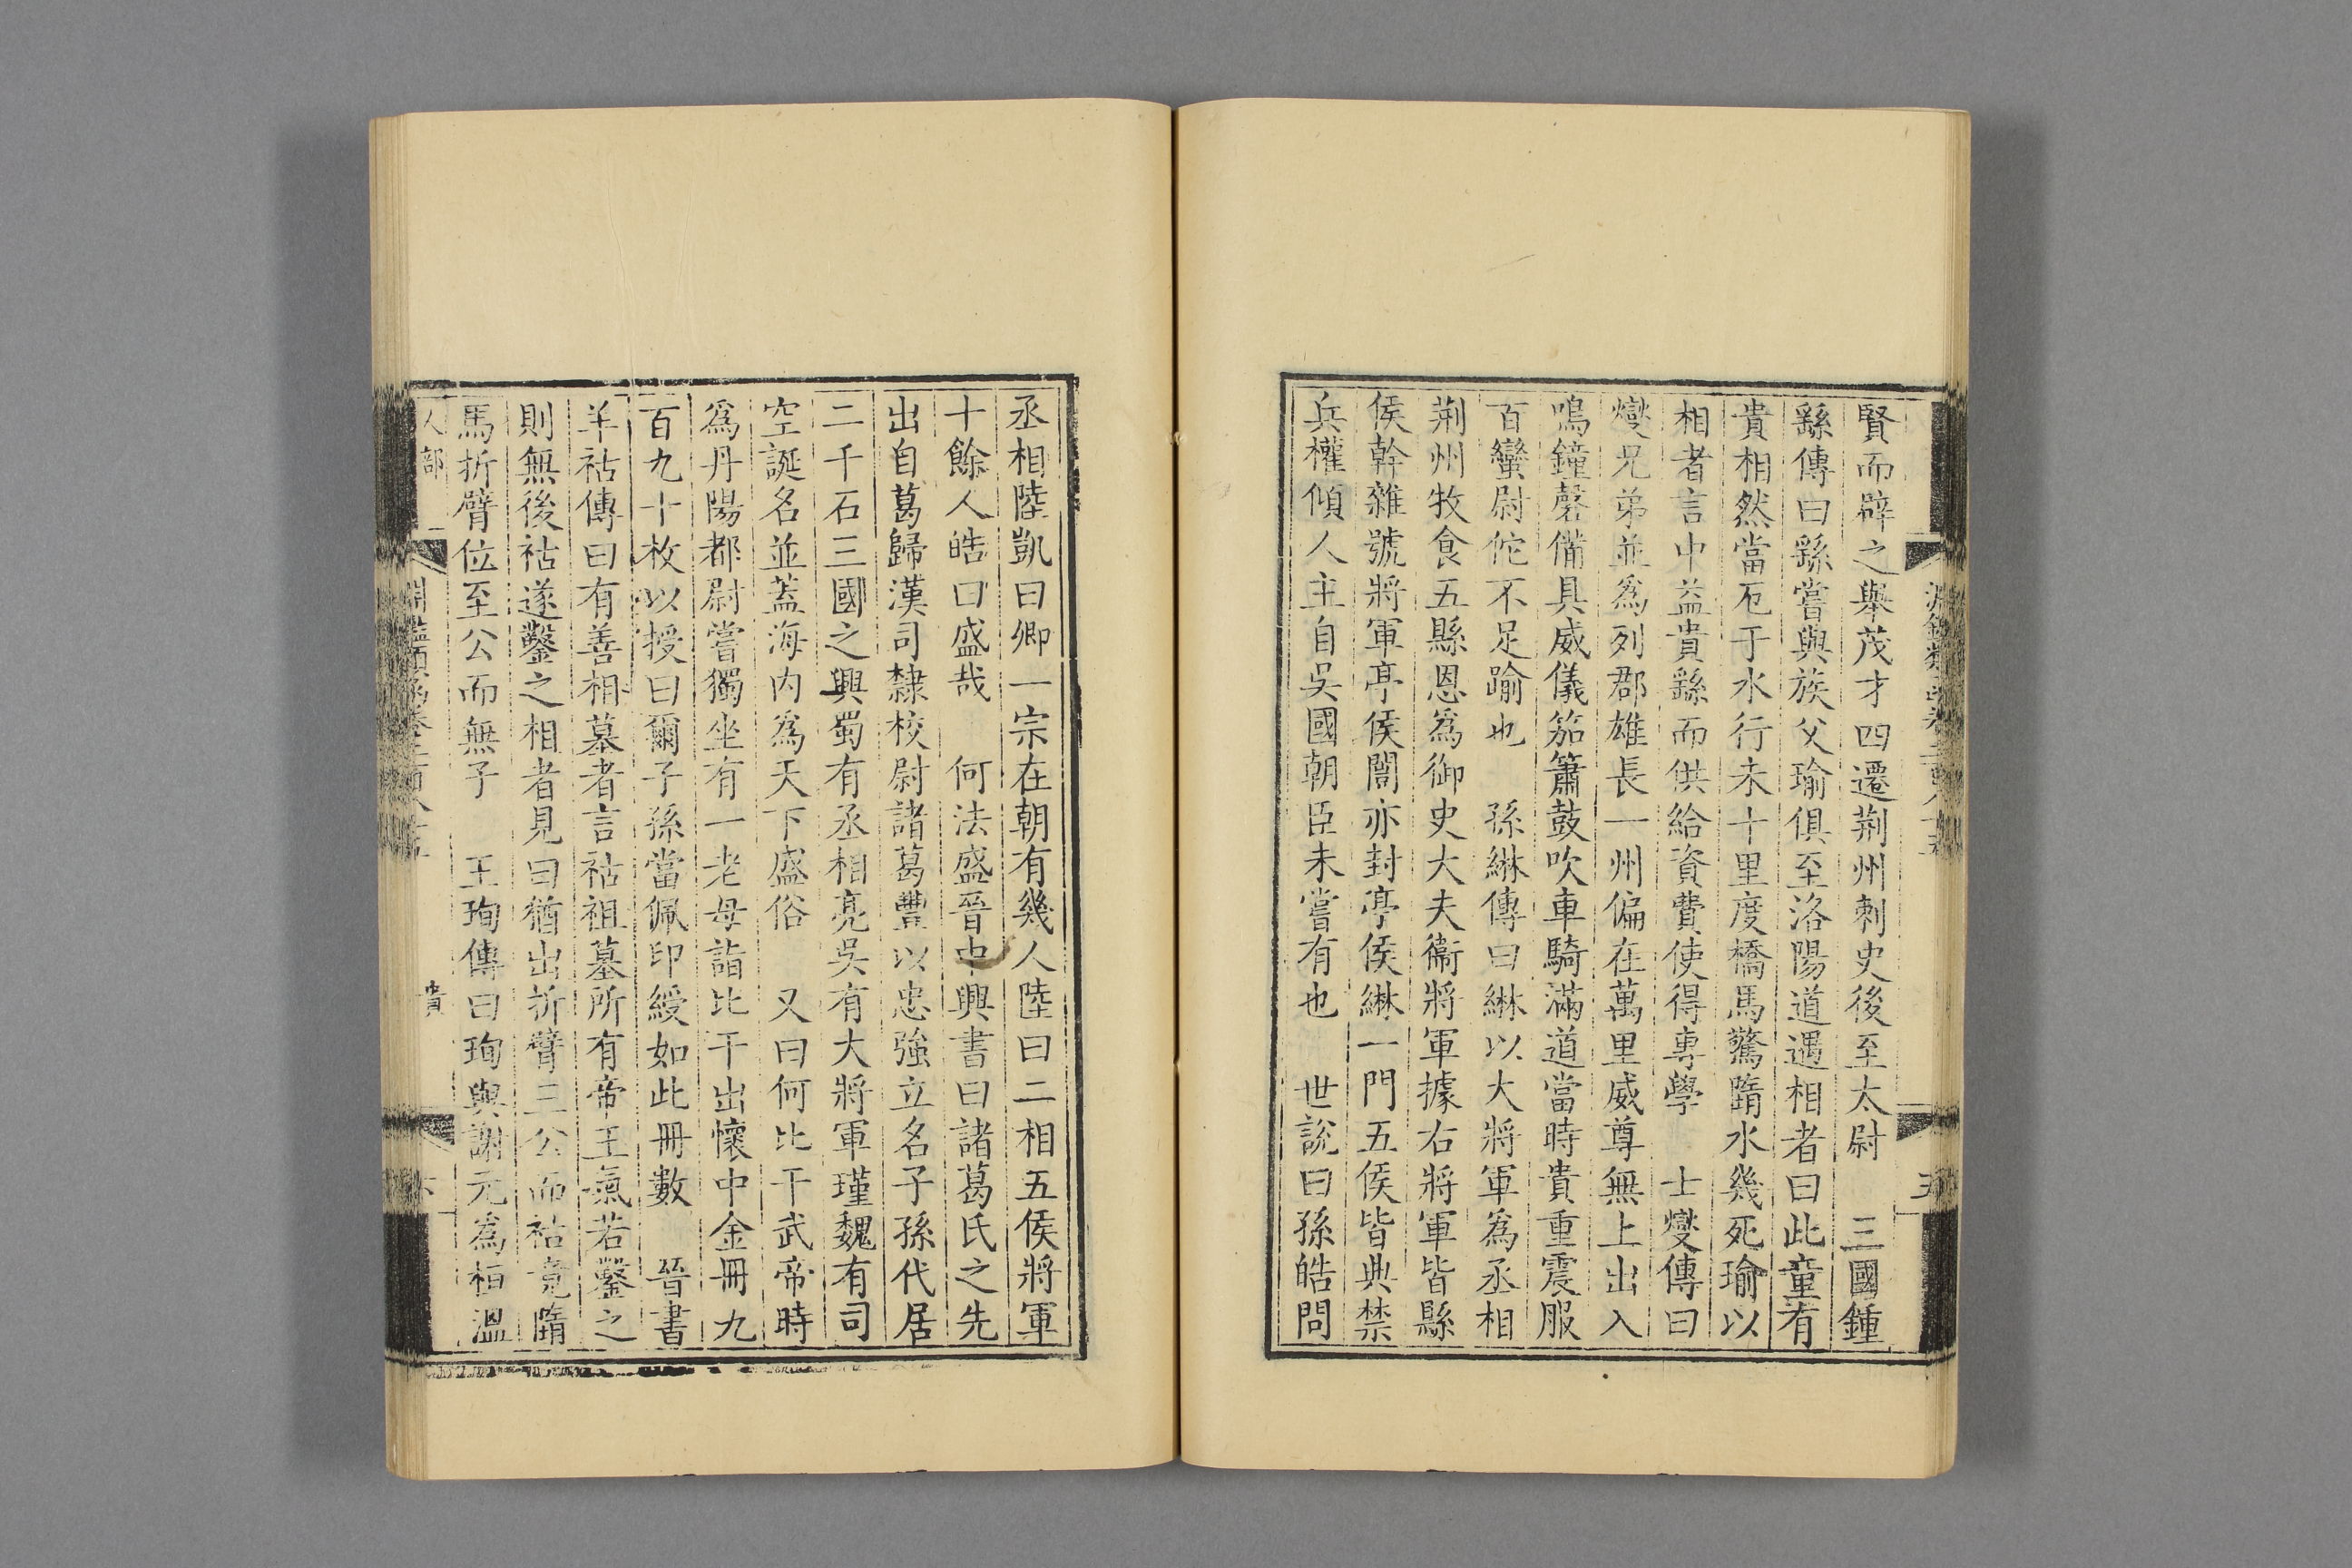 賢而辟之舉茂才四遷荆州刺史後至太尉　三國鍾
繇傳曰繇嘗與族父瑜俱至洛陽道遇相者曰此童有
貴相然當厄于水行未十里度橋馬驚墮水幾死瑜以
相者言中益貴繇而供給資費使得專學　士燮傳曰
燮兄弟並為列郡雄長一州偏在萬里威尊無上出入
鳴鐘磬備具威儀笳簫鼓吹車騎滿道當時貴重震服
百蠻尉佗不足踰也　孫綝傳曰綝以大將軍為丞相
荆州牧食五縣恩為御史大夫衞將軍據右將軍皆縣
侯幹雜號將軍亭侯闓亦封亭侯綝一門五侯皆典禁
兵權傾人主自吳國朝臣未嘗有也　世說曰孫皓問
丞相陸凱曰卿一宗在朝有幾人陸曰二相五侯將軍
十餘人皓曰盛哉　何法盛晉中興書曰諸葛氏之先
出自葛歸漢司隸校尉諸葛豐以忠強立名子孫代居
二千石三國之興蜀有丞相亮吳有大將軍瑾魏有司
空誕名並蓋海内為天下盛俗　又曰何比干武帝時
為丹陽都尉嘗獨坐有一老母詣比干出懷中金冊九
百九十枚以授曰爾子孫當佩印綬如此冊數　晉書
羊祜傳曰有善相墓者言祜祖墓所有帝王氣若鑿之
則無後祜遂鑿之相者見曰猶出折臂三公而祜竟墮
馬折臂位至公而無子　王珣傳曰珣與謝元為桓溫
人部
貴